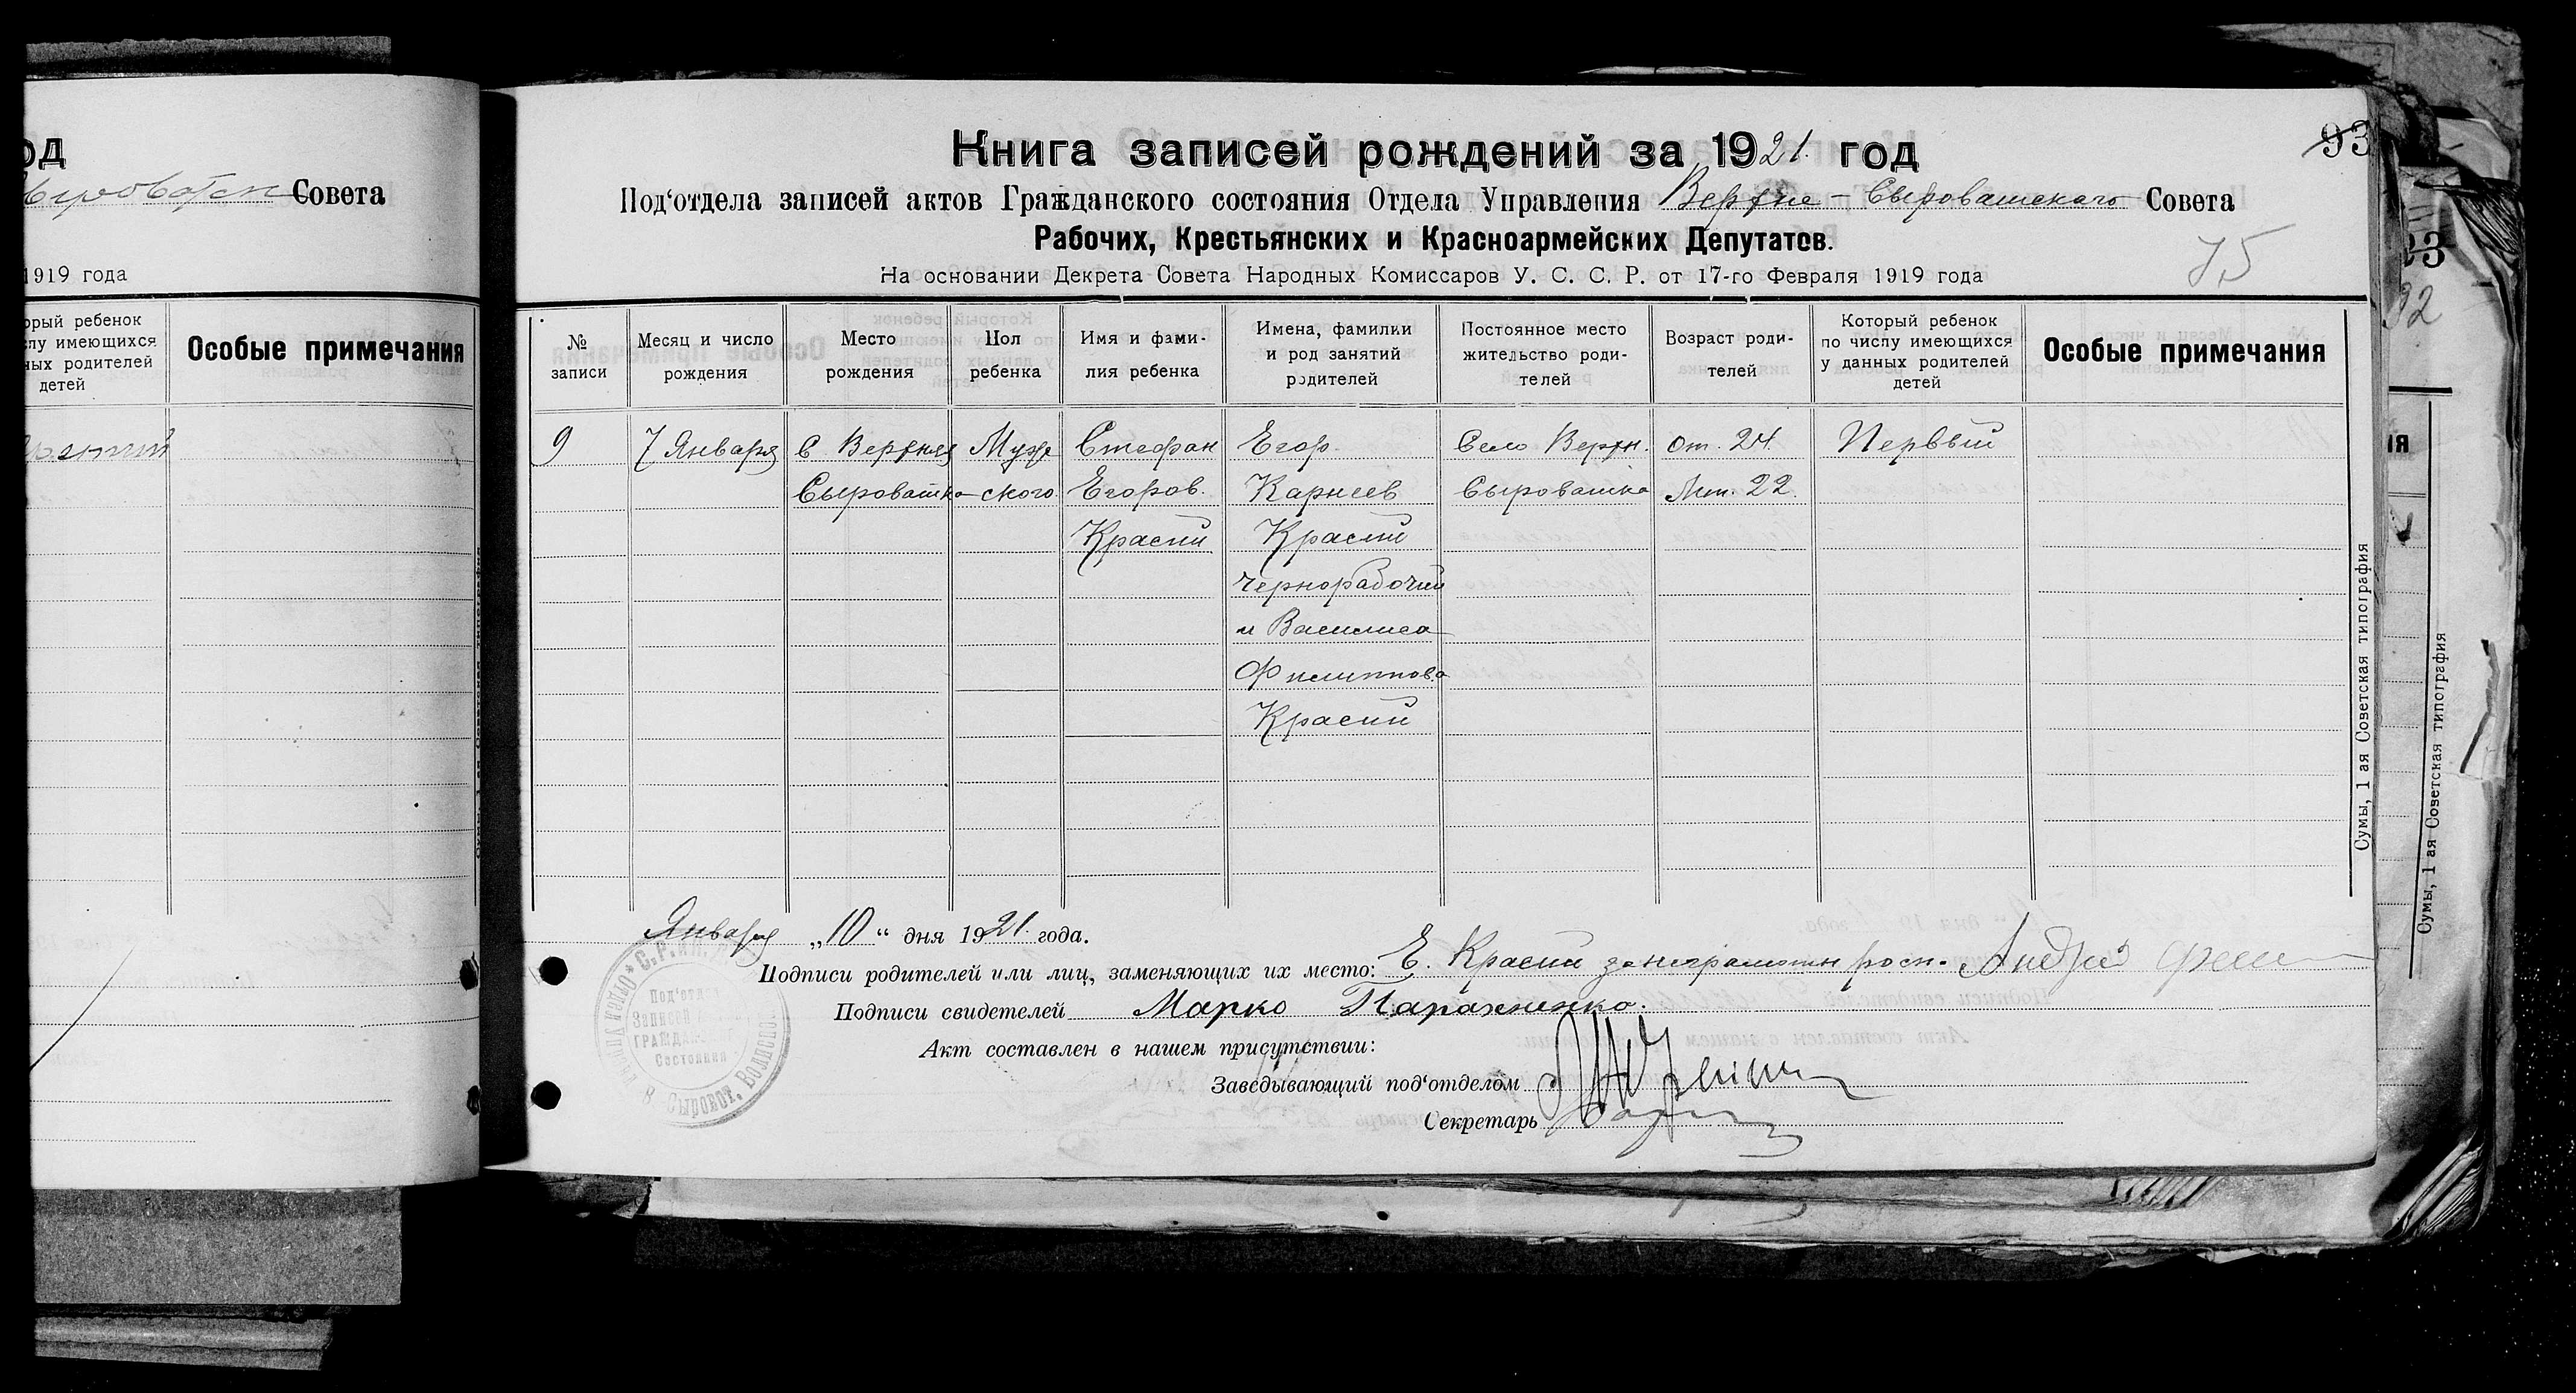 од
Совета
1919 года
Особые примечания
Книга записей рождений за 1921. год
93
Под‘отдела записей актов Гражданского состояния Отдела Управления Верхне-Сыроватского Совета
Рабочих, Крестьянских и Красноармейских Депутатов.
75
На основании Декрета Совета Народных Комиссаров У. С. С. Р. от 17-го Февраля 1919 года
№ записи
Месяц и число рождения
Место рождения
Пол ребенка
Имя и фами-
лия ребенка
Имена, фамилии
и род занятий
родителей
Постоянное место
жительство роди-
телей
Возраст роди-
телей
Который ребенок
по числу имеющихся
у данных родителей
детей
Особые примечания
9
7 Января
С Верхняя
Сыроватка
Муж
ского.
Стефан
Егоров.
Красий
Егор
Карнеев
Красий
Чернорабочий
и Василиса
Филиппова
Красий
Село Верхн.
Сыроватка
От. 24
Мт. 22.
Первый
Января „10“ дня 1921. года.
Подписи родителей или лиц, заменяющих их место: Е. Красий за неграмотн росп. Андрей
Подписи свидетелей Марко
Акт составлен в нашем присутствии:
Заведывающий под‘отделом
Секретарь
Сумы, 1 ая Советская типография
Сумы, 1 ая Советская типография